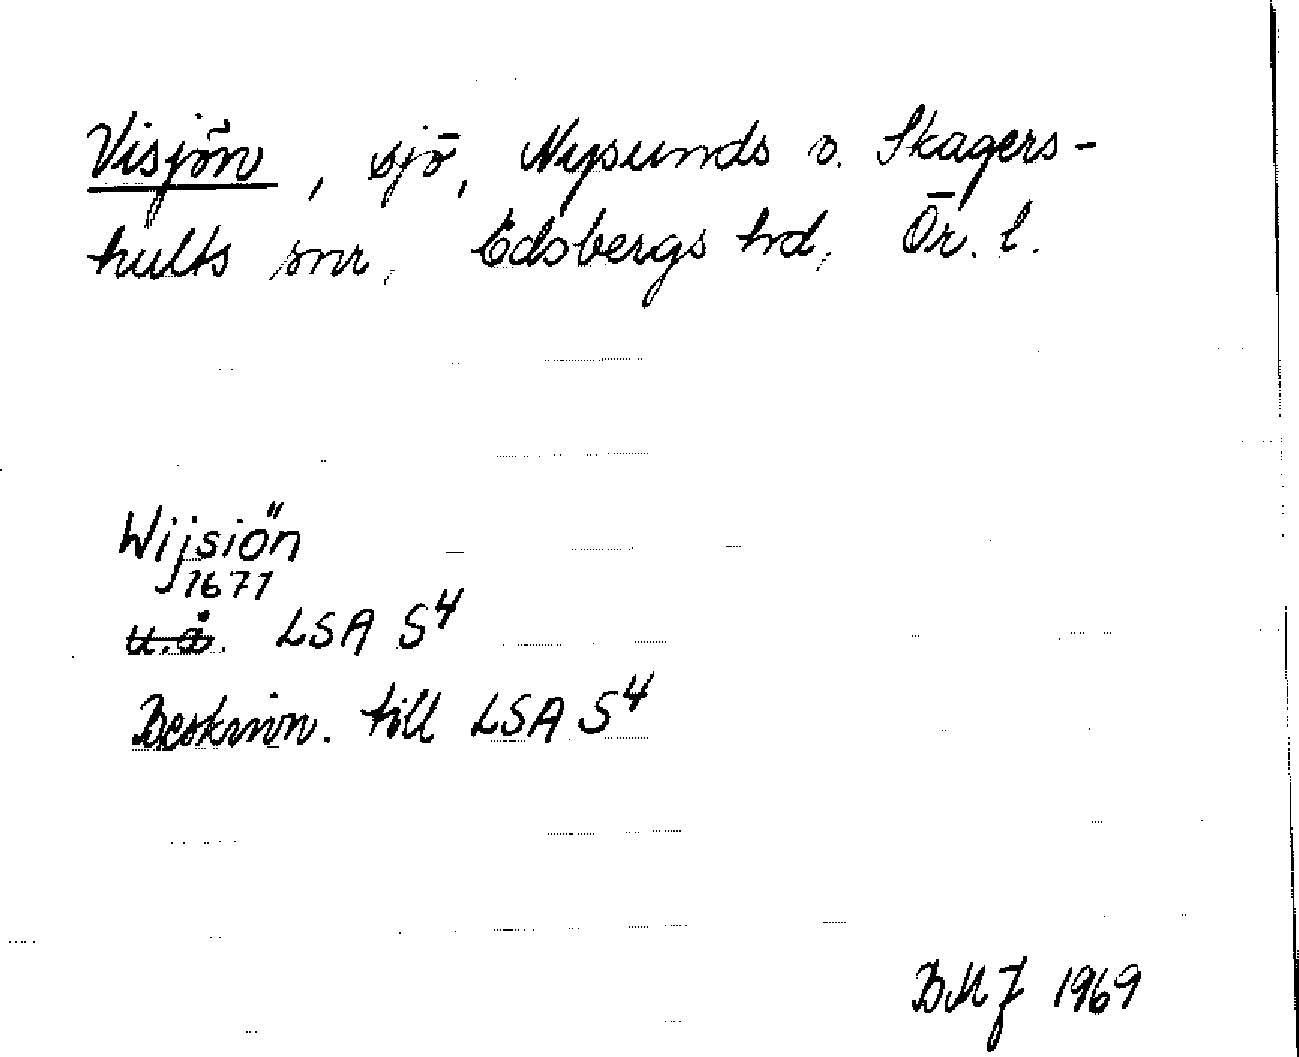 Visjön, sjö, Nysunds o. Skagers-
hults snr, Edsbergs hd, Ör. l.
Wijsiön
1671
u.å. LSA S4
Beskrivn. till LSA S4
BMJ 1969